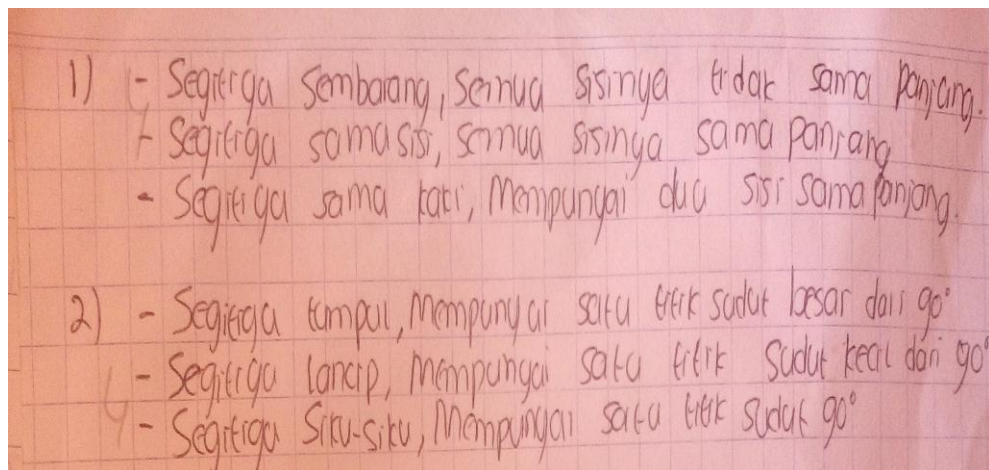 1) - Segitiga Sembarang, Semua sisinya tidak sama panjang.
- Segitiga sama sisi, semua sisinya sama panjang
- Segitiga sama kaki, Mempunyai dua sisi sama panjang.
2) - Segitiga tumpul, Mempunyai satu titik sudut besar dari 90°
- Segitiga lancip, Mempunyai satu titik sudut kecil dari 90°
- Segitiga Siku-siku, Mempunyai satu titik sudut 90°